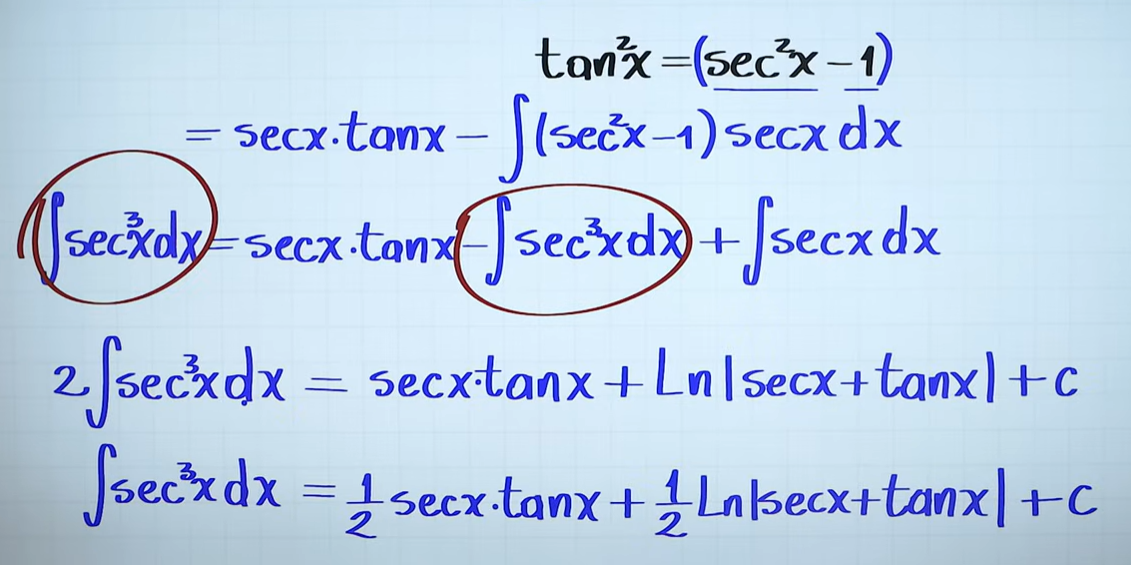 tan²x =(sec²x − 1)
= secx·tanx − ∫(sec²x−1)secx dx
∫sec³xdx = secx·tanx − ∫sec³xdx + ∫secx dx
2∫sec³xdx = secx·tanx + Ln|secx+tanx| + c
∫sec³x dx = 1/2 secx·tanx + 1/2 Ln|secx+tanx| + c